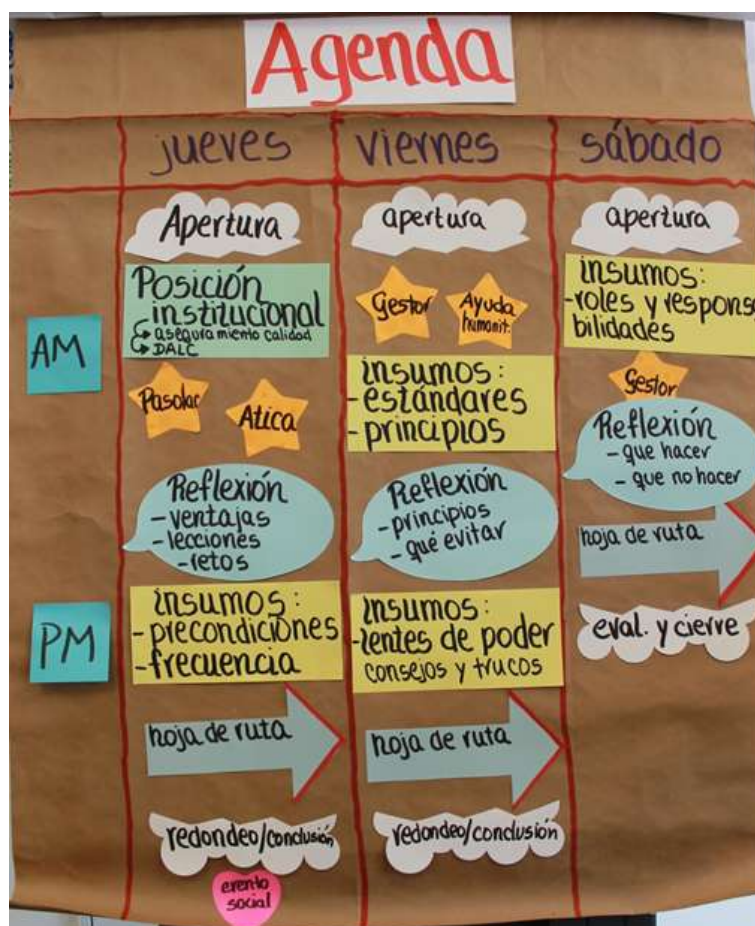 Agenda
jueves
viernes
sábado
AM
PM
Apertura
Posición
institucional
aseguramiento calidad
DALC
Pasolac
Atica
Reflexión
- ventajas
- lecciones
- retos
insumos:
- precondiciones
- frecuencia
hoja de ruta
redondeo/conclusión
evento
social
apertura
Gestor
Ayuda
humanit.
insumos:
- estándares
- principios
Reflexión
- principios
- qué evitar
insumos:
- lentes de poder
consejos y trucos
hoja de ruta
redondeo/conclusión
apertura
insumos:
- roles y respons
bilidades
Gestor
Reflexión
- que hacer
- que no hacer
hoja de ruta
eval. y cierre